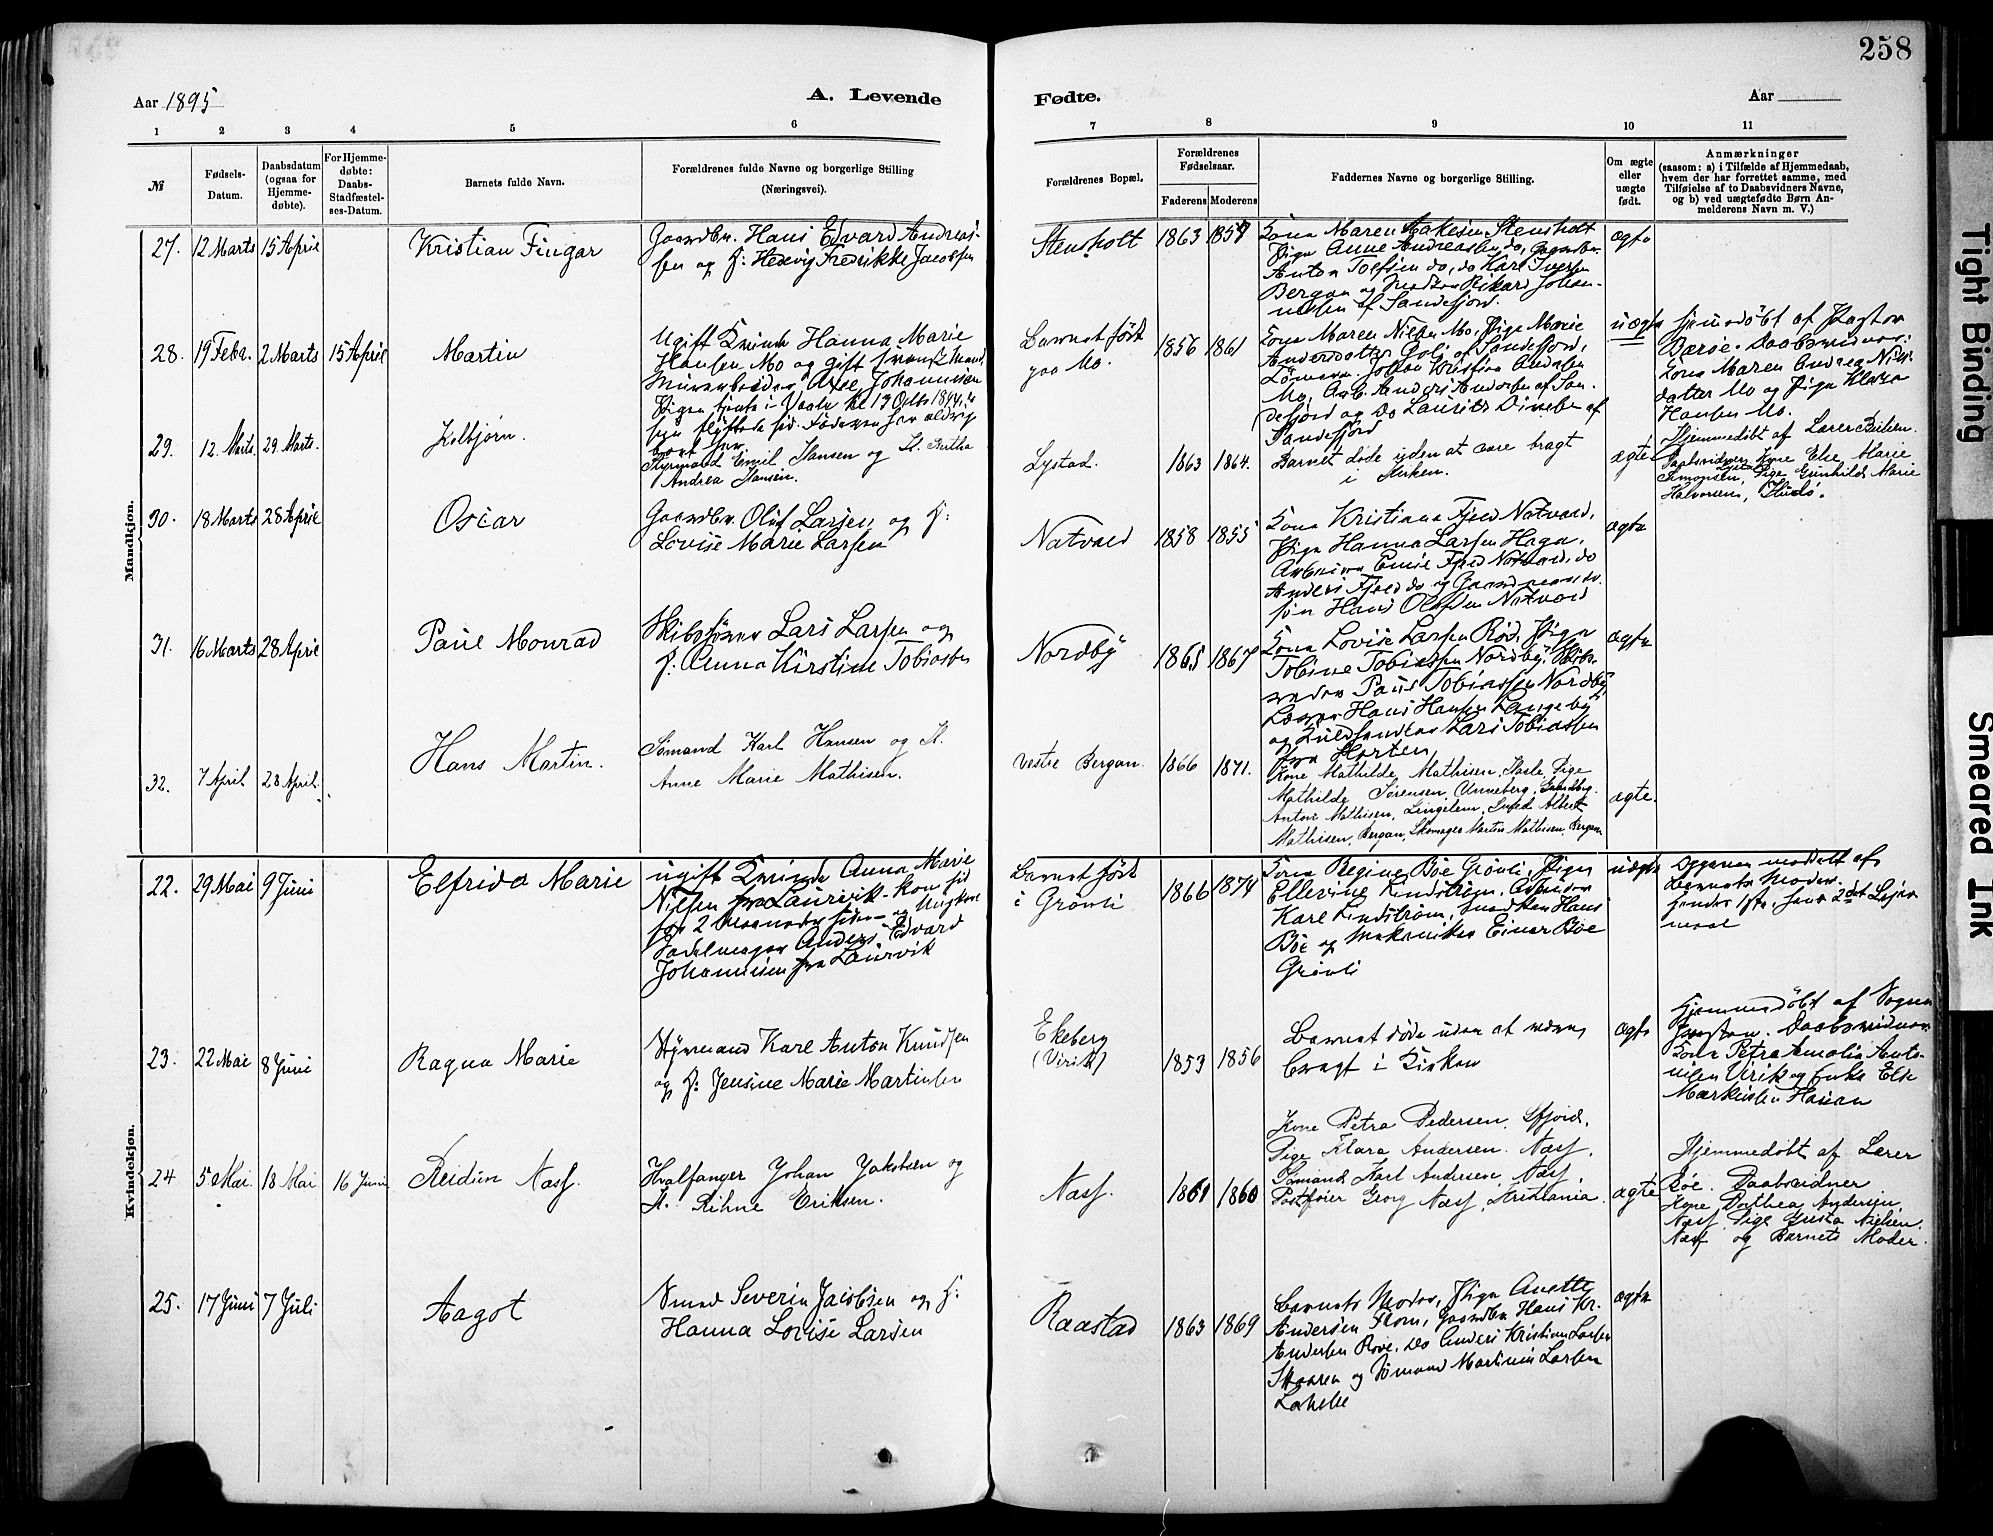 258
Aar 1895
A. Levende
Fødte.
Aar
1 2 3 4 5 6 7 8 9 10 11
№
Fødsels-
Datum.
Daabsdatum
(ogsaa for
Hjemme-
døbte).
For Hjemme-
døbte:
Daabs-
Stadfæstel-
ses-Datum.
Barnets fulde Navn.
Forældrenes fulde Navne og borgerlige Stilling
(Næringsvei).
Forældrenes Bopæl.
Forældrenes
Fødselsaar.
Faderens
Moderens
Faddernes Navne og borgerlige Stilling.
Om ægte
eller
uægte
født.
Anmærkninger
(saasom: a) i Tilfælde af Hjemmedaab,
hvem der har forrettet samme, med
Tilføielse af to Daabsvidners Navne,
og b) ved uægtefødte Børn An-
melderens Navn m. V.)
Mandkjøn.
27. 12 Marts 15 April
Kristian Fingar
Gaardbr. Hans Edvard Andreas-
sen og H: Hedevig Fredrikke Jacobsen
Stensholt
1863 1857
Kona Maren Aakesen Stensholt
Pige Anne Andreassen do, Gaardbr.
Anton Tollfsen do, do Karl Iversen
Bergan og Rikard Johan-
nessen af Sandefjord.
ægte
28. 19 Febr. 2 Marts 15 April
Martin
Ugift Kvinde Hanna Marie
Hansen Mo og gift Mand,
Murarbeider Axel Johannesen
Pigen tjente i Vaale til 13 Octb 1894,
Faderen har aldrig
boet her
Barnet født
paa Mo.
1856 1861
Kona Maren Nilsen Mo, Pige Marie
Andersdatter af Sandefjord,
Johan Kristian Andersen
Mo, Arb. Anders Andersen af San-
defjord og do Laurits af
Sandefjord
uægte
Hjemmedøbt af Pastor
Børse. Daabsvidner:
Kona Maren Andrea Nils-
datter Mo og Pige Klara
Hansen Mo.
29. 12 Marts. 29 Marts.
Kolbjørn.
Styrmand Emil Hansen og H. Bertha
Andrea Hansen.
Lystad.
1863 1864.
Barnet døde uden at være bragt
i Kirken.
ægte
Hjemmedøbt af Lærer
Daabsvidner Kone Else Marie
Simonsen, Pige Gunhild Marie
Halvorsen,
30. 18 Marts 28 April
Oscar
Gaardbr. Oluf Larsen og H:
Lovise Marie Larsen
Natvald
1858 1855
Kona Kristiane Fjeld Natvald,
Pige Hanna Larsen Haga,
Emil Fjeld Natvald, do
Anders Fjeld do og
Hans Olafsen Natvald
ægte
31. 16 Marts 28 April
Paul Monrad
Skibsfører Lars Larsen og
H: Anna Kirstine Tobiassen
Nordby
1865 1867
Kona Lovise Larsen Rød, Pige
Tobine Tobiassen Nordby,
Paul Tobiassen Nordby,
Hans Hansen Langeby
og Lars Tobiassen
fra Horten
ægte
32. 7 April 28 April.
Hans Martin.
Sømand Karl Hansen og H.
Anne Marie Mathisen.
Vestre Bergan.
1866 1871.
Kone Mathilde Mathisen, Pige
Mathilde Sørensen, Anneberg, Gaardbrg.
Anton Mathisen, Lingelem, Smed Albert
Mathisen, Bergan, Skomager Martin Mathisen, Bergan
ægte.
Kvindekjøn.
22. 29 Mai 9 Juni
Elfrida Marie
ugift Kvinde Anna Marie
Nilsen fra Laurvik - kom hid
for 2 Maaneder siden - og Ungkarl
Sadelmager Anders Edvard
Johannesen fra Laurvik
Barnet født
i Grøvli
1866 1874
Kona Regine Bøe Grøvli, Pige
Ellevine Lindstrøm,
Karl Lindstrøm, Hans
Bøe og Mekaniker Einar Bøe
Grøvli
uægte
Opgaven meddelt af
Barnets Moder.
Hendes 1ste, hans 2det Leier-
maal
23. 22 Mai 8 Juni
Ragna Marie
Styrmand Karl Anton Knudsen
og H: Jensine Marie Martinsen
Ekeberg
(Virik)
1853 1856
Barnet døde uden at være
bragt i Kirken
ægte
Hjemmedøbt af Sogne-
præsten. Daabsvidner
Kone Petra Amalie Anto-
nisen Virik og Enke Else
Markussen Hasan
24 5 Mai 18 Mai 16 Juni
Reidun Næss.
Hvalfanger Johan Jakobsen og
H. Rihne Eriksen.
Næss.
1861 1860
Kone Petra Pedersen, Efjord,
Pige Klara Andersen, Næss,
Sømand Karl Andersen, Næss,
Postfører Georg Næss, Kristiania.
ægte
Hjemmedøbt af Lærer
Bøe. Daabsvidner
Kone Dorthea Andersen,
Næss, Pige Gusta Nielsen,
Næss og Barnets Moder.
25. 17 Juni 7 Juli
Aagot
Smed Severin Jacobsen og H:
Hanna Lovise Larsen
Raastad
1863 1869
Barnets Moder, Pige Anette
Andersen Flom, Gaardbr Hans Kr.
Andersen Rove, do Anders Kristian Larsen
Skaaren og Sømand Martinius Larsen
ægte
Tight Binding
Smeared Ink